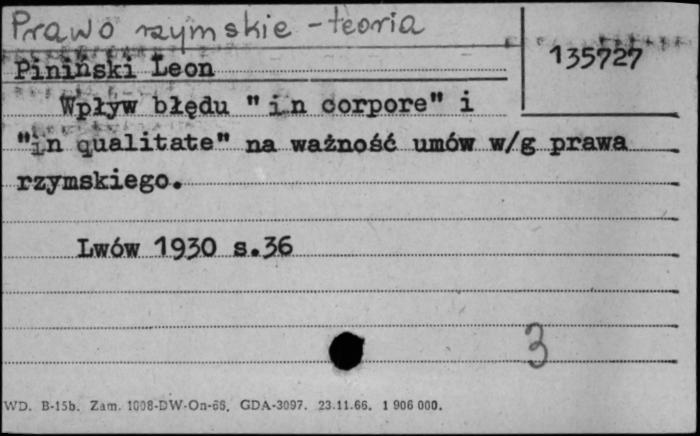 Prawo rzymskie - teoria
135727
Piniński Leon
Wpływ błędu "in corpore" i
"in qualitate" na ważność umów w/g prawa
rzymskiego.
Lwów 1930 s.36
3
WD. B-15b. Zam. 1008-DW-On-66. GDA-3097. 23.11.66. 1 906 000.